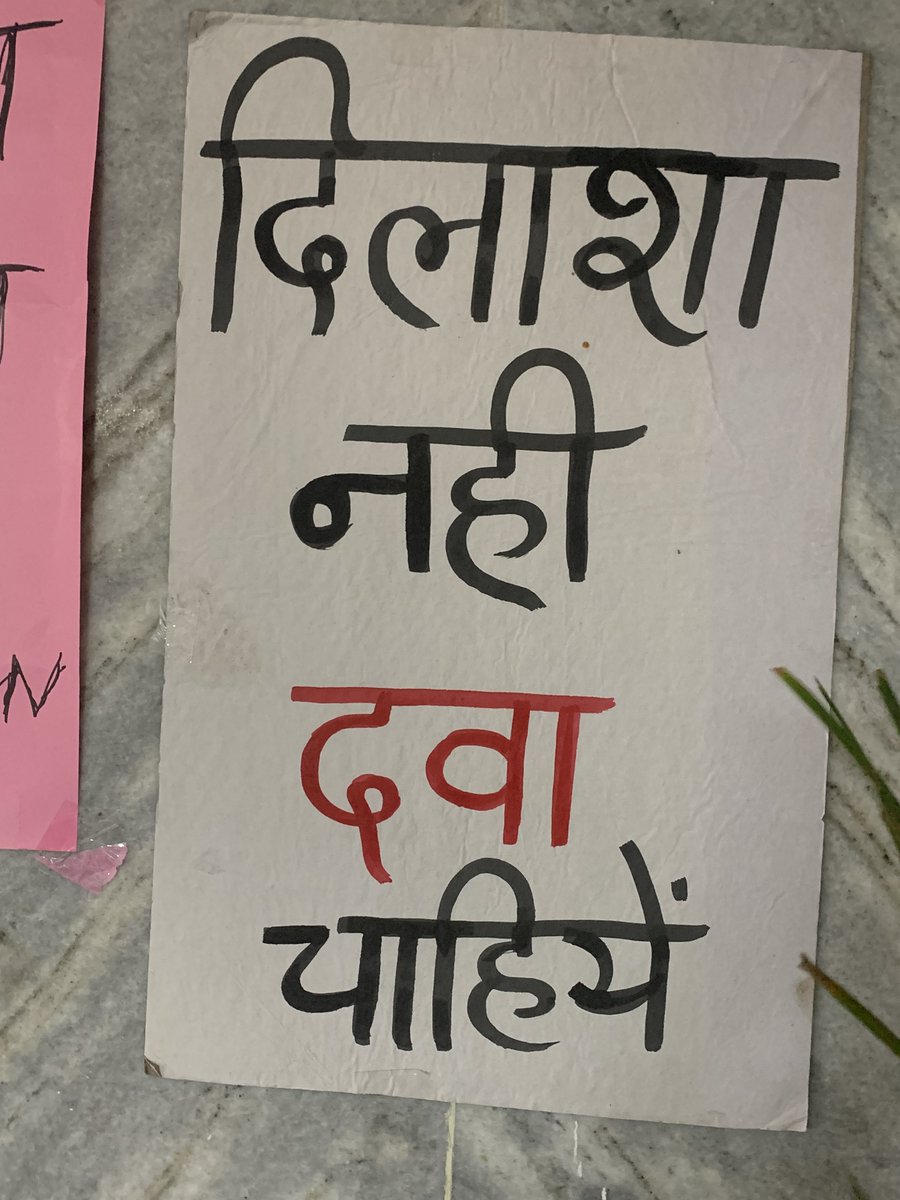 दिलाशा
नही
दवा
चाहियें
N